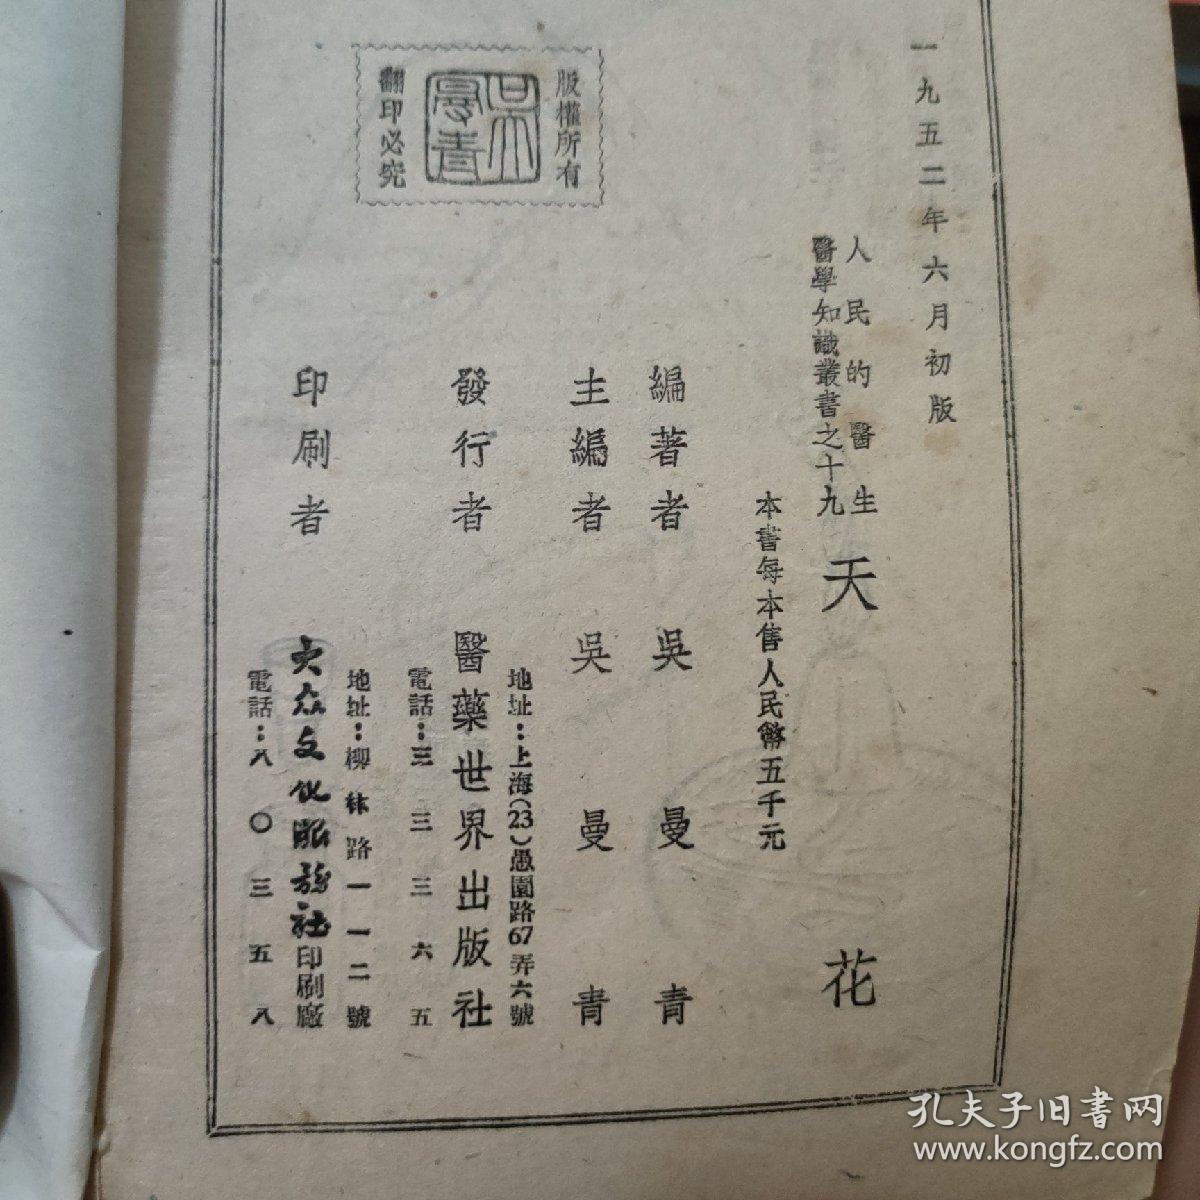 一九五二年六月初版
人民的醫生
醫學知識叢書之十九
天花
本書每本售人民幣五千元
編著者 吳曼青
主編者 吳曼青
地址：上海(23)愚園路67弄六號
發行者 醫藥世界出版社
電話：三三三六五
地址：柳林路一一二號
印刷者 大众文化服務社印刷廠
電話：八〇三五八
版權所有
吳曼青
翻印必究
孔夫子旧書网
www.kongfz.com